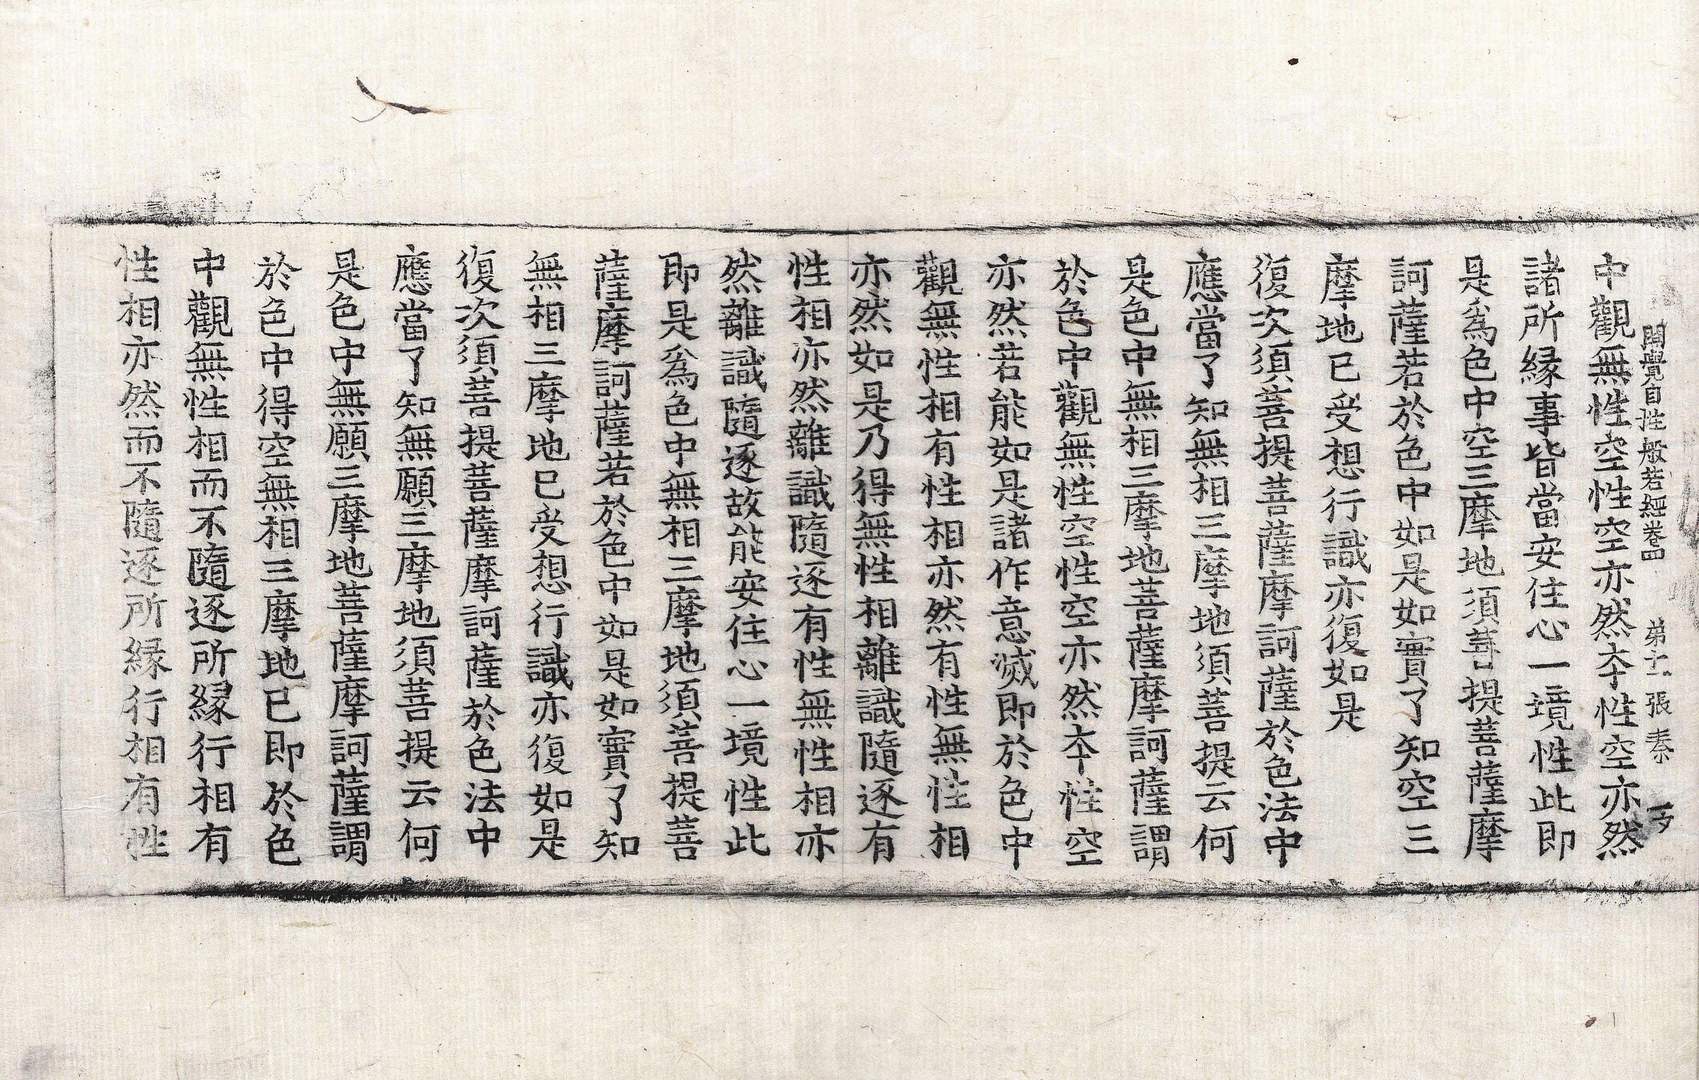 開覺自性般若經卷四 第十一張 秦
中觀無性空性空亦然本性空亦然
諸所緣事皆當安住心一境性此即
是為色中空三摩地須菩提菩薩摩
訶薩若於色中如是如實了知空三
摩地已受想行識亦復如是
復次須菩提菩薩摩訶薩於色法中
應當了知無相三摩地須菩提云何
是色中無相三摩地菩薩摩訶薩謂
於色中觀無性空性空亦然本性空
亦然若能如是諸作意滅即於色中
觀無性相有性相亦然有性無性相
亦然如是乃得無性相離識隨逐有
性相亦然離識隨逐有性無性相亦
然離識隨逐故能安住心一境性此
即是為色中無相三摩地須菩提菩
薩摩訶薩若於色中如是如實了知
無相三摩地已受想行識亦復如是
復次須菩提菩薩摩訶薩於色法中
應當了知無願三摩地須菩提云何
是色中無願三摩地菩薩摩訶薩謂
於色中得空無相三摩地已即於色
中觀無性相而不隨逐所緣行相有
性相亦然而不隨逐所緣行相有性